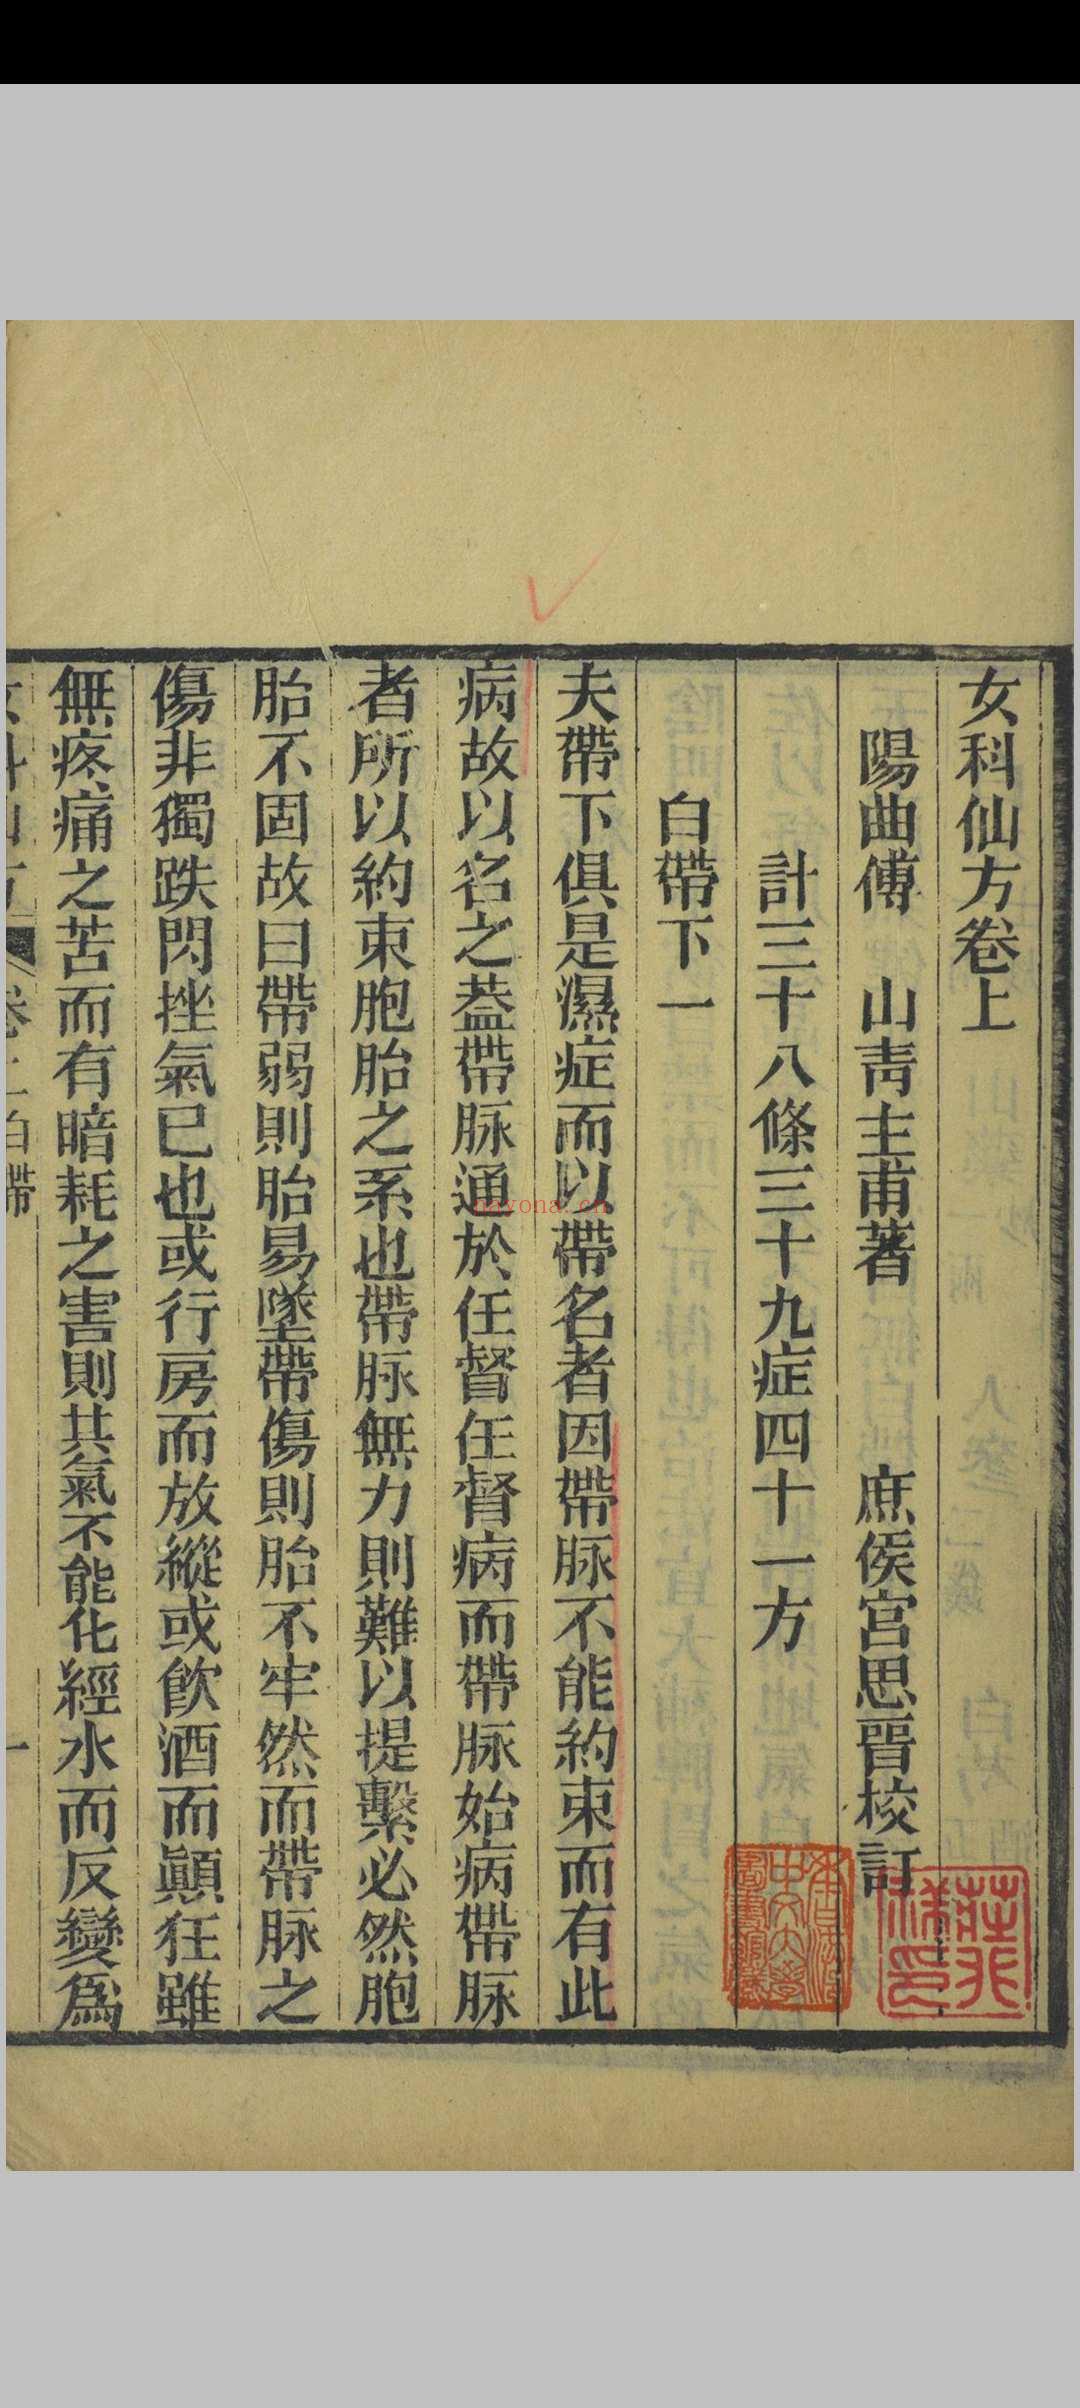 女科仙方卷上
陽曲傅 山靑主甫著 庶侯宮思晉校訂
計三十八條三十九症四十一方
白帶下一
夫帶下俱是濕症而以帶名者因帶脉不能約束而有此
病故以名之葢帶脉通於任督任督病而帶脉始病帶脉
者所以約束胞胎之系也帶脉無力則難以提繫必然胞
胎不固故曰帶弱則胎易墜帶傷則胎不牢然而帶脉之
傷非獨跌閃挫氣已也或行房而放縱或飮酒而顚狂雖
無疼痛之苦而有暗耗之害則共氣不能化經水而反變爲
nayona.cn